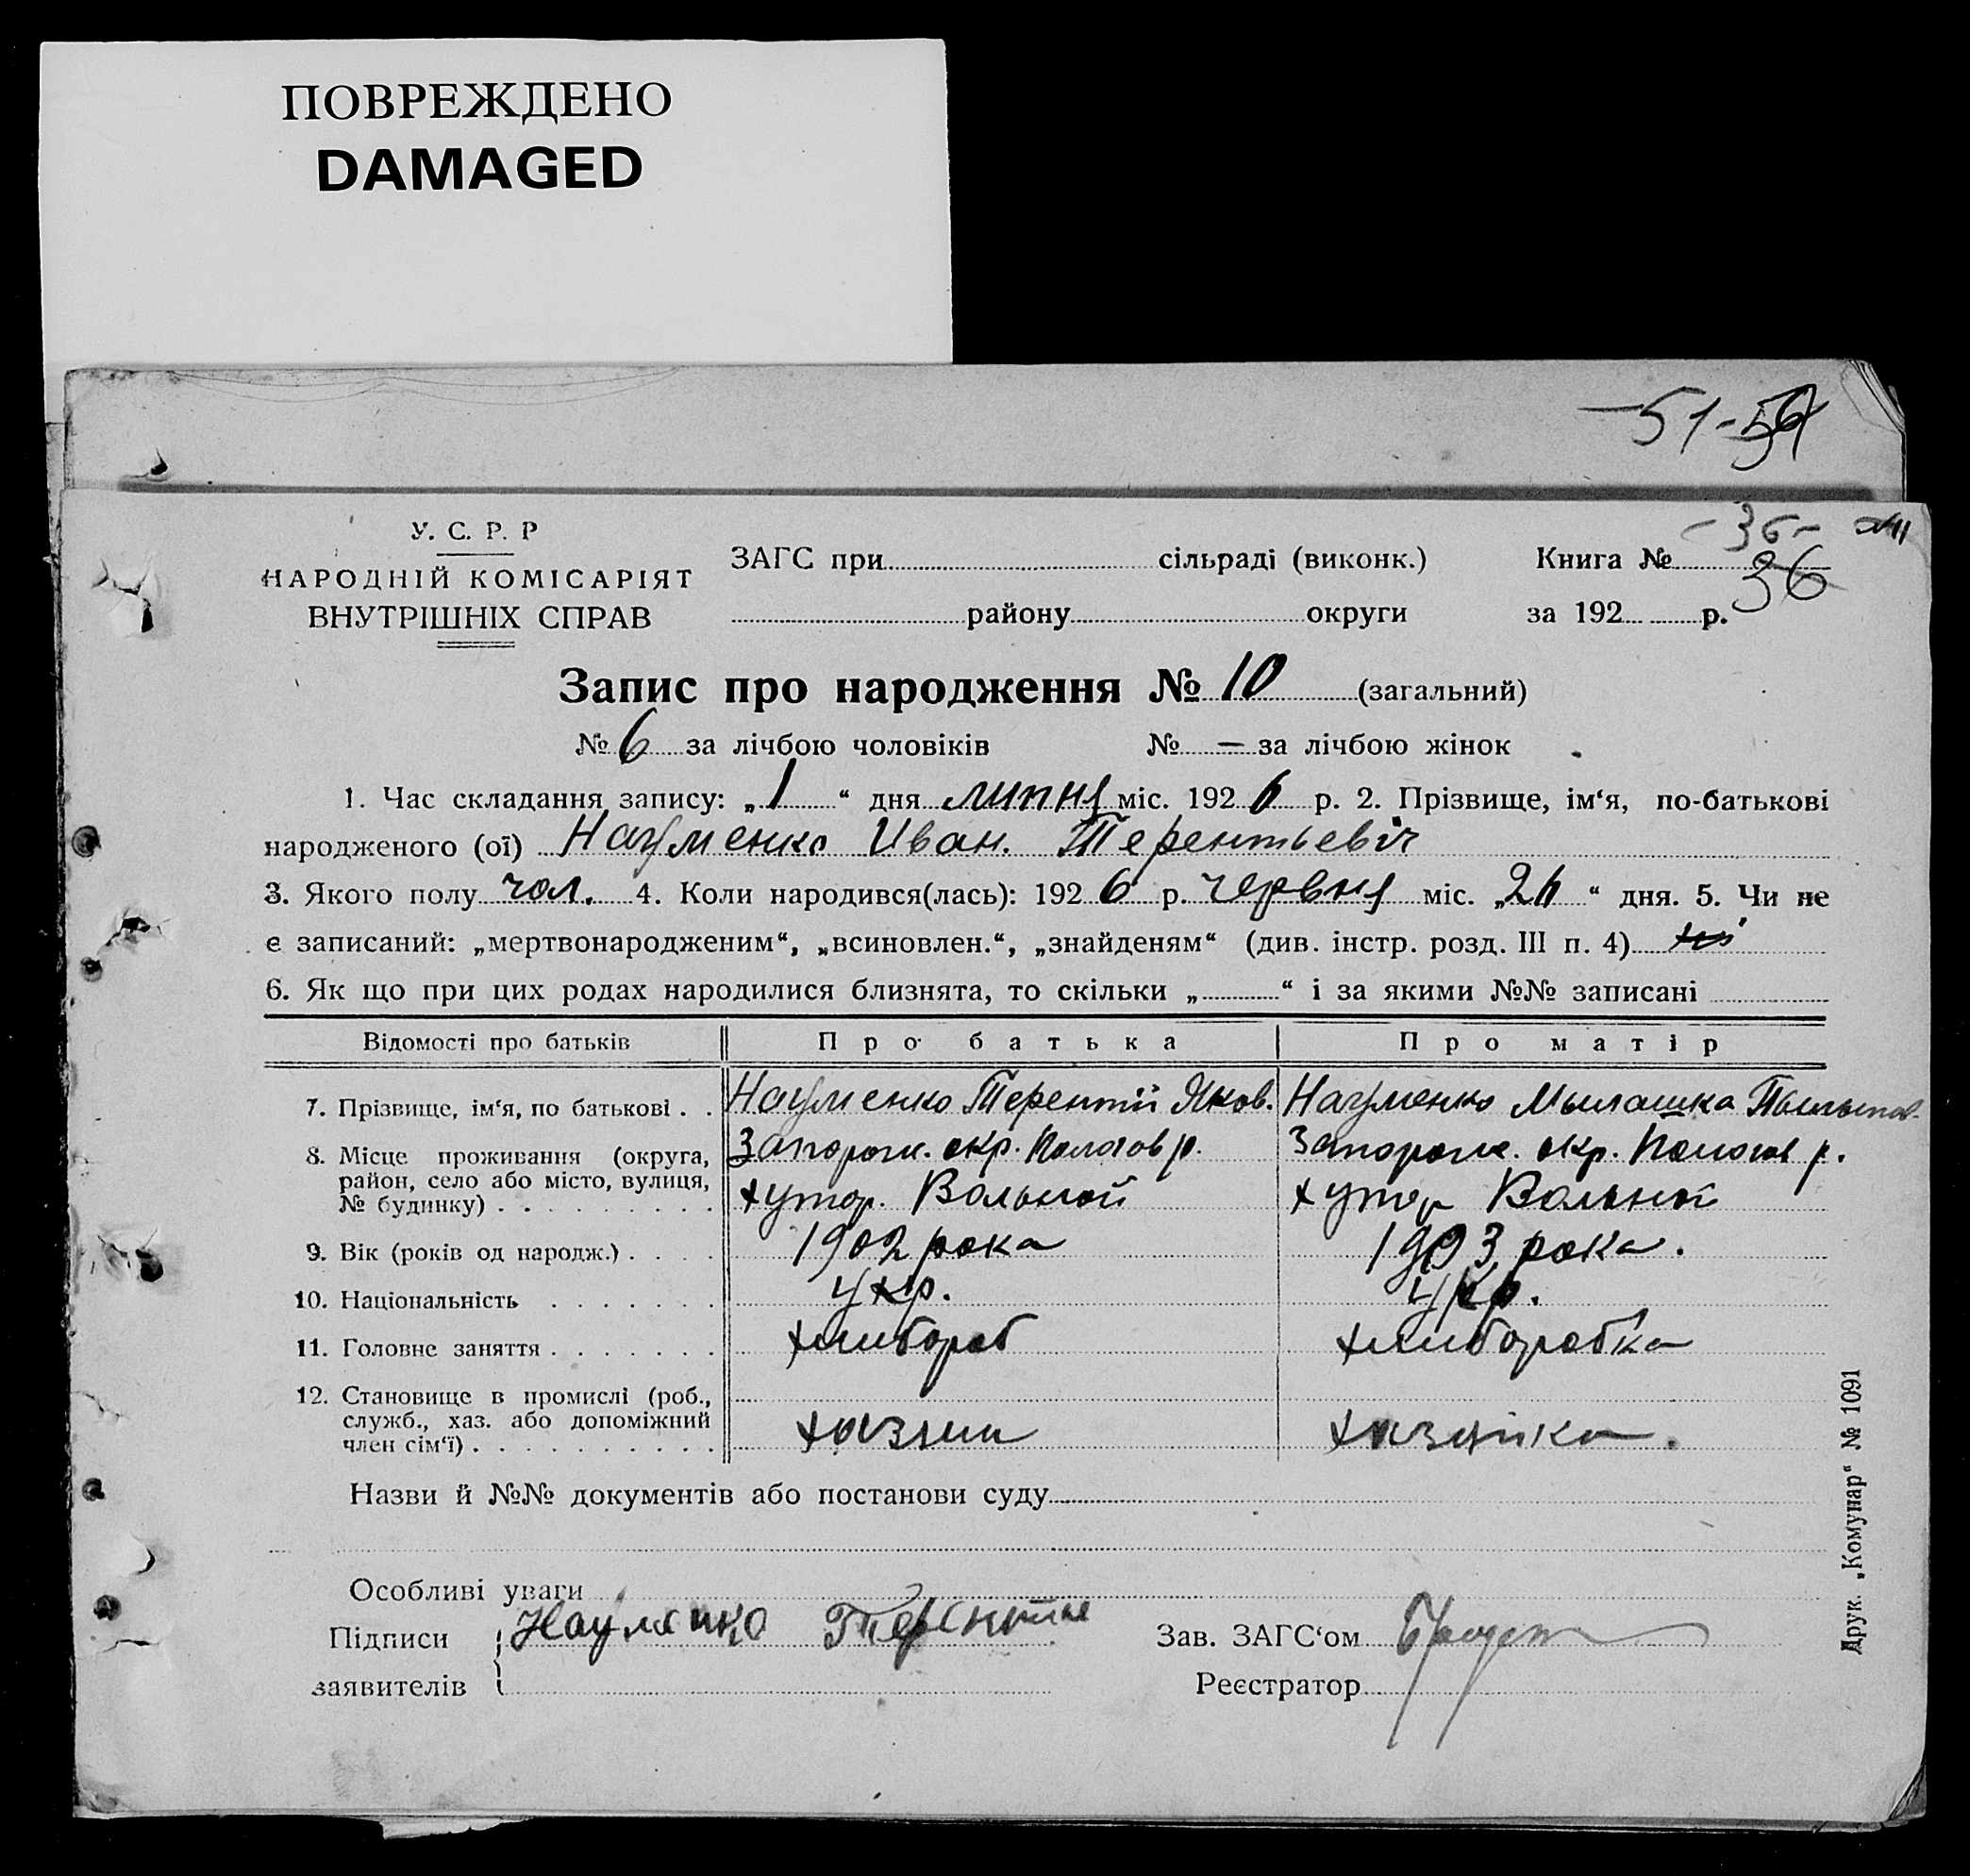 ПОВРЕЖДЕНО
DAMAGED
-51-
У. С. Р. Р
НАРОДНІЙ КОМІСАРІЯТ
ВНУТРІШНІХ СПРАВ
ЗАГС при сільраді (виконк.)
району округи
-36-
Книга №
36
за 192 р.
Запис про народження № 10 (загальний)
№ 6 за лічбою чоловіків № — за лічбою жінок
1. Час складання запису: „1“ дня липня міс. 1926 р. 2. Прізвище, ім‘я, по-батькові
народженого (ої) Науменко Иван. Терентьевіч
3. Якого полу чол. 4. Коли народився(лась): 1926 р. червня міс. „ “ дня. 5. Чи не
є записаний: „мертвонародженим“, „всиновлен.“, „знайденям“ (див. інстр. розд. III п. 4)
6. Як що при цих родах народилися близнята, то скільки „ “ і за якими №№ записані
Відомості про батьків Про батька Про матір
7. Прізвище, ім‘я, по батькові . . Науменко Терентій Яков. Науменко Мылашка
8. Місце проживання (округа, Запорож. окр. Пологов р. Запорож. окр. Пологов р.
район, село або місто, вулиця,
№ будинку) хутор. Вольной хутор Вольной
9. Вік (років од народж.) 1902 рока 1903 рока.
10. Національність укр. укр.
11. Головне заняття хлибороб хлиборобка
12. Становище в промислі (роб.,
служб., хаз. або допоміжний
член сім‘ї) хазяин хазяйка.
Назви й №№ документів або постанови суду
Особливі уваги
Підписи Науменко Терентий
заявителів
Зав. ЗАГС‘ом
Реєстратор
Друк. „Комунар“ № 1091